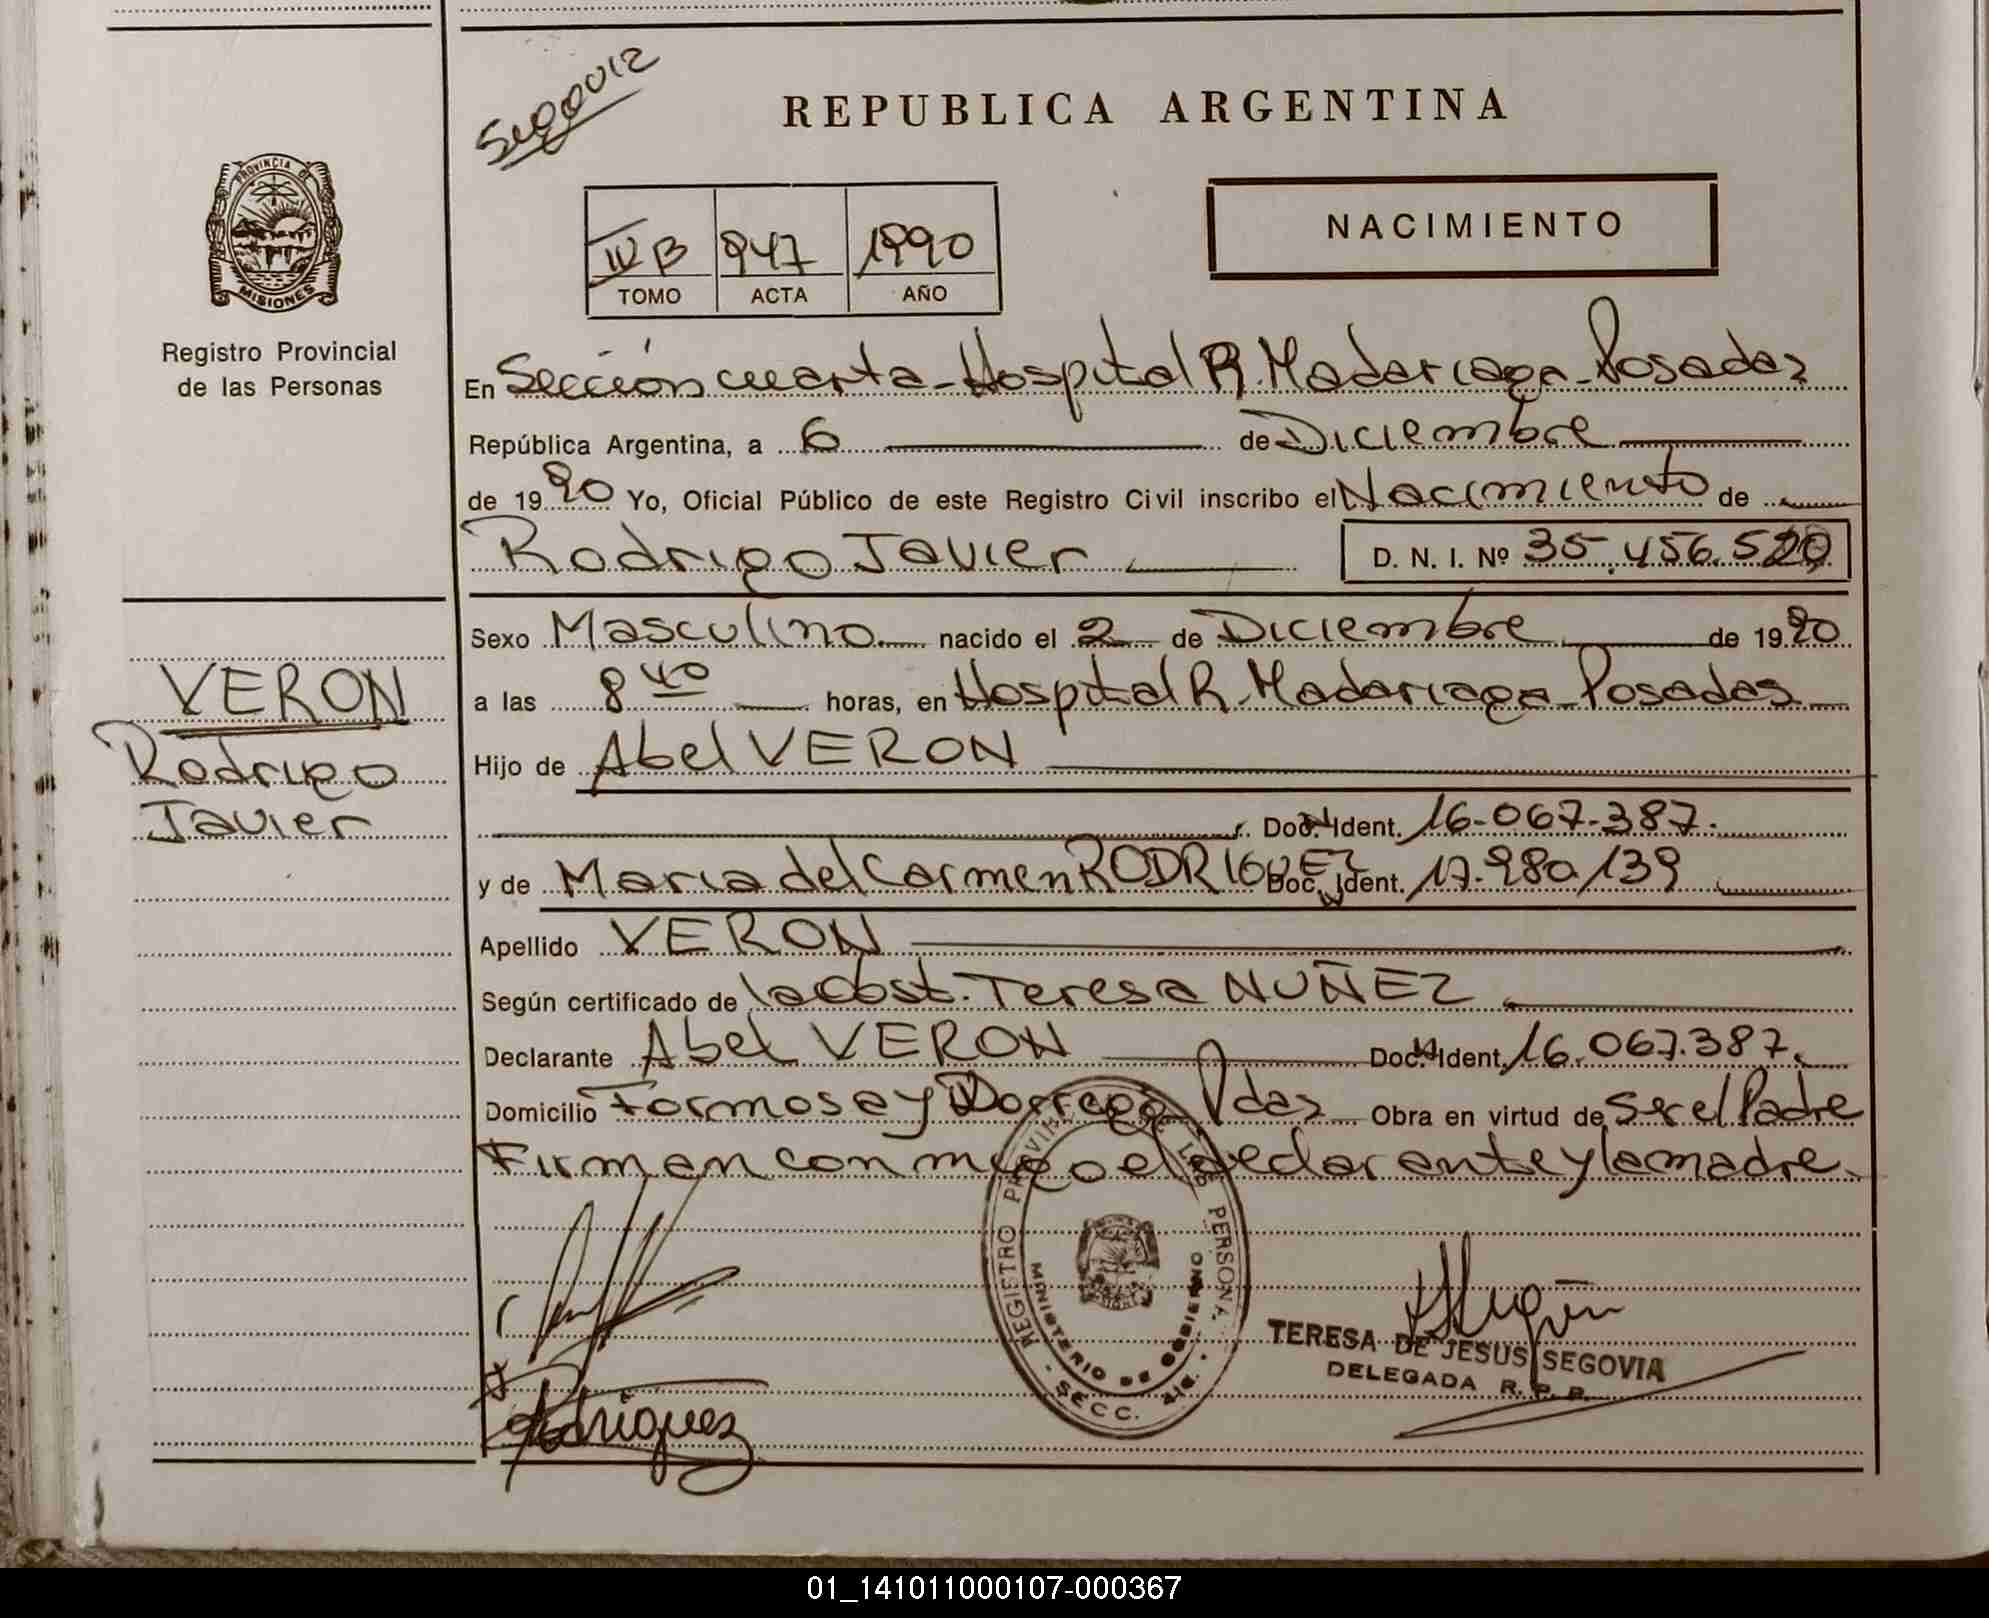 REPUBLICA ARGENTINA
PROVINCIA DE
MISIONES
Registro Provincial
de las Personas
IV B 947 1990
TOMO ACTA AÑO
NACIMIENTO
En Sección cuarta - Hospital R. Madariaga - Posadas
República Argentina, a 6 de Diciembre
de 1990 Yo, Oficial Público de este Registro Civil inscribo el Nacimiento de
Rodrigo Javier D. N. I. Nº 35.456.520
Sexo Masculino nacido el 2 de Diciembre de 1990
a las 8 40 horas, en Hospital R. Madariaga - Posadas
Hijo de Abel VERON
Doc. Ident. 16.067.387.
y de Maria del Carmen RODRIGUEZ Doc. Ident. 17.980.139
Apellido VERON
Según certificado de la Obst. Teresa NUÑEZ
Declarante Abel VERON Doc. Ident. 16.067.387.
Domicilio Formosa y Dorrego Pdas Obra en virtud de Ser el Padre
Firman conmigo el declarante y la madre.
VERON
Rodrigo
Javier
REGISTRO PROVIN LAS PERSONA
MINISTERIO DE GOBIERNO
SECC. 4ta.
Rodriguez
TERESA DE JESUS SEGOVIA
DELEGADA R. P. P.
01_141011000107-000367